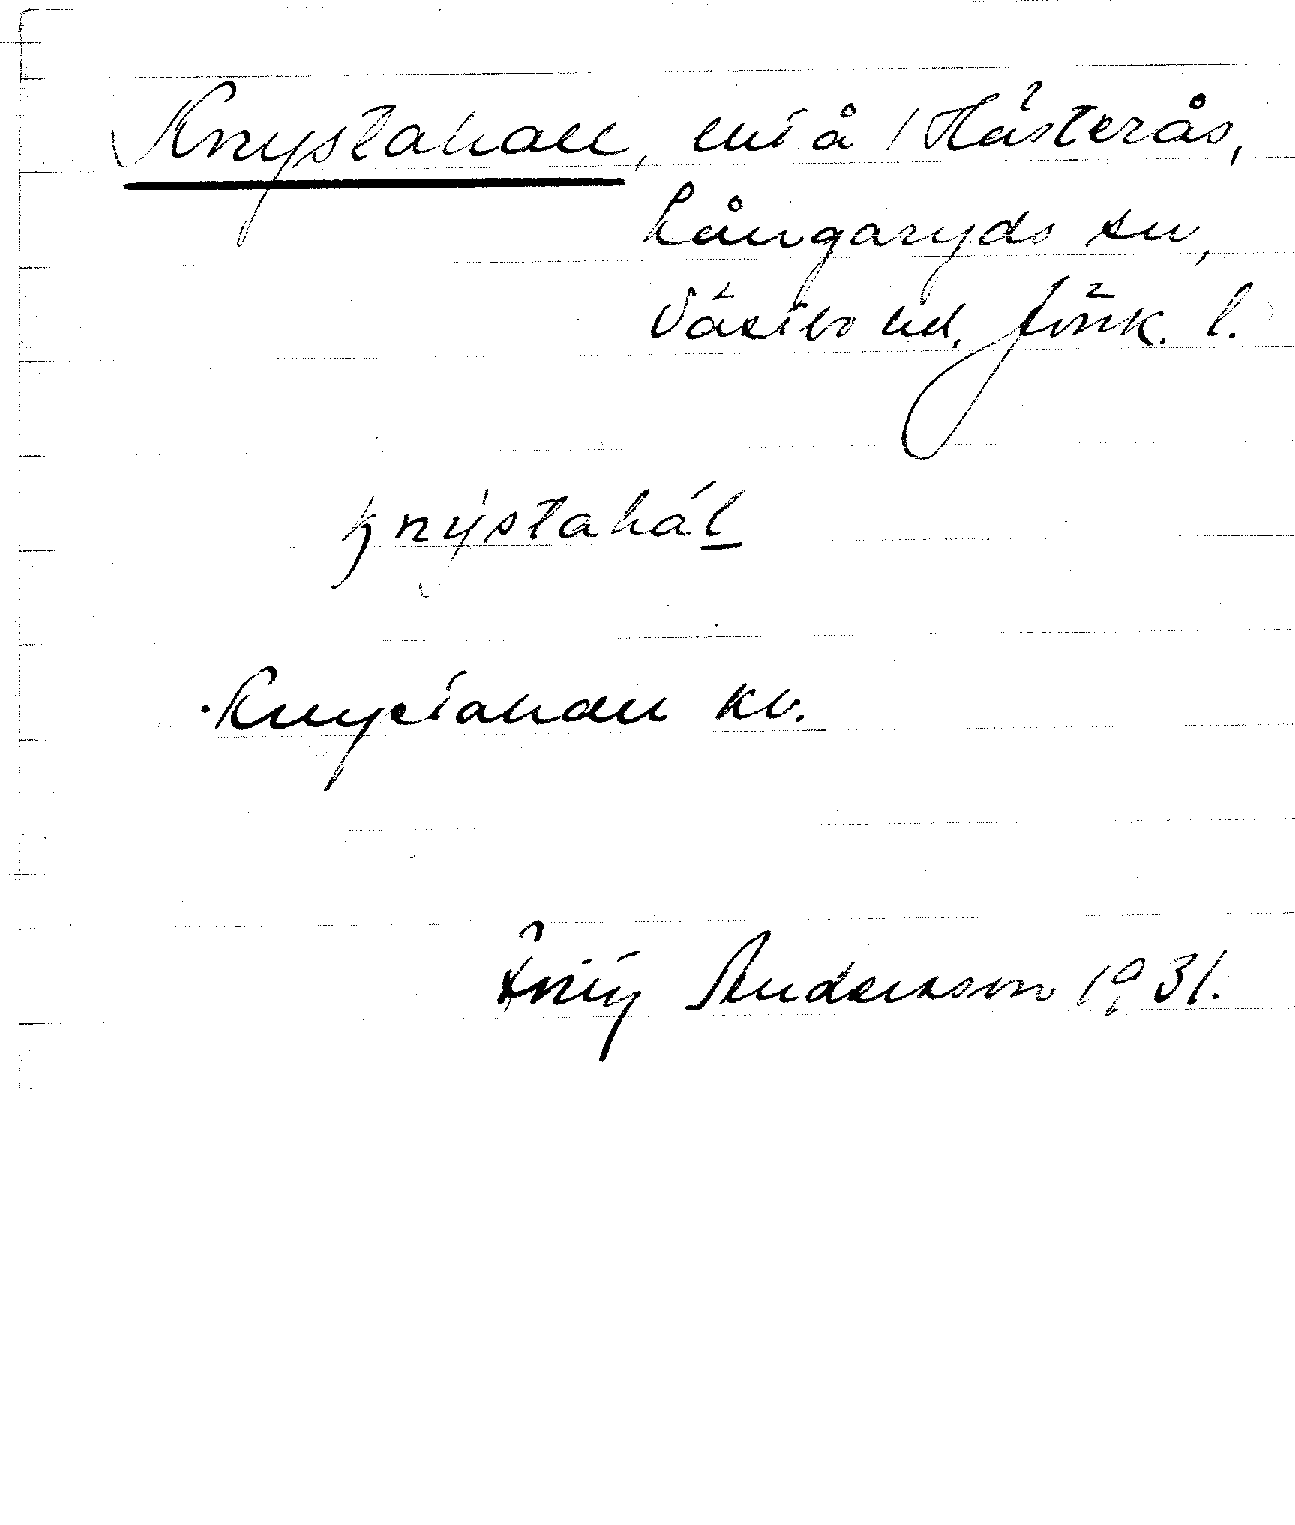 Knystahall, lht å Hästerås,
Långaryds sn,
Västbo hd, Jönk. l.
knýstahál
Knystahall kv.
Anderson 1931.